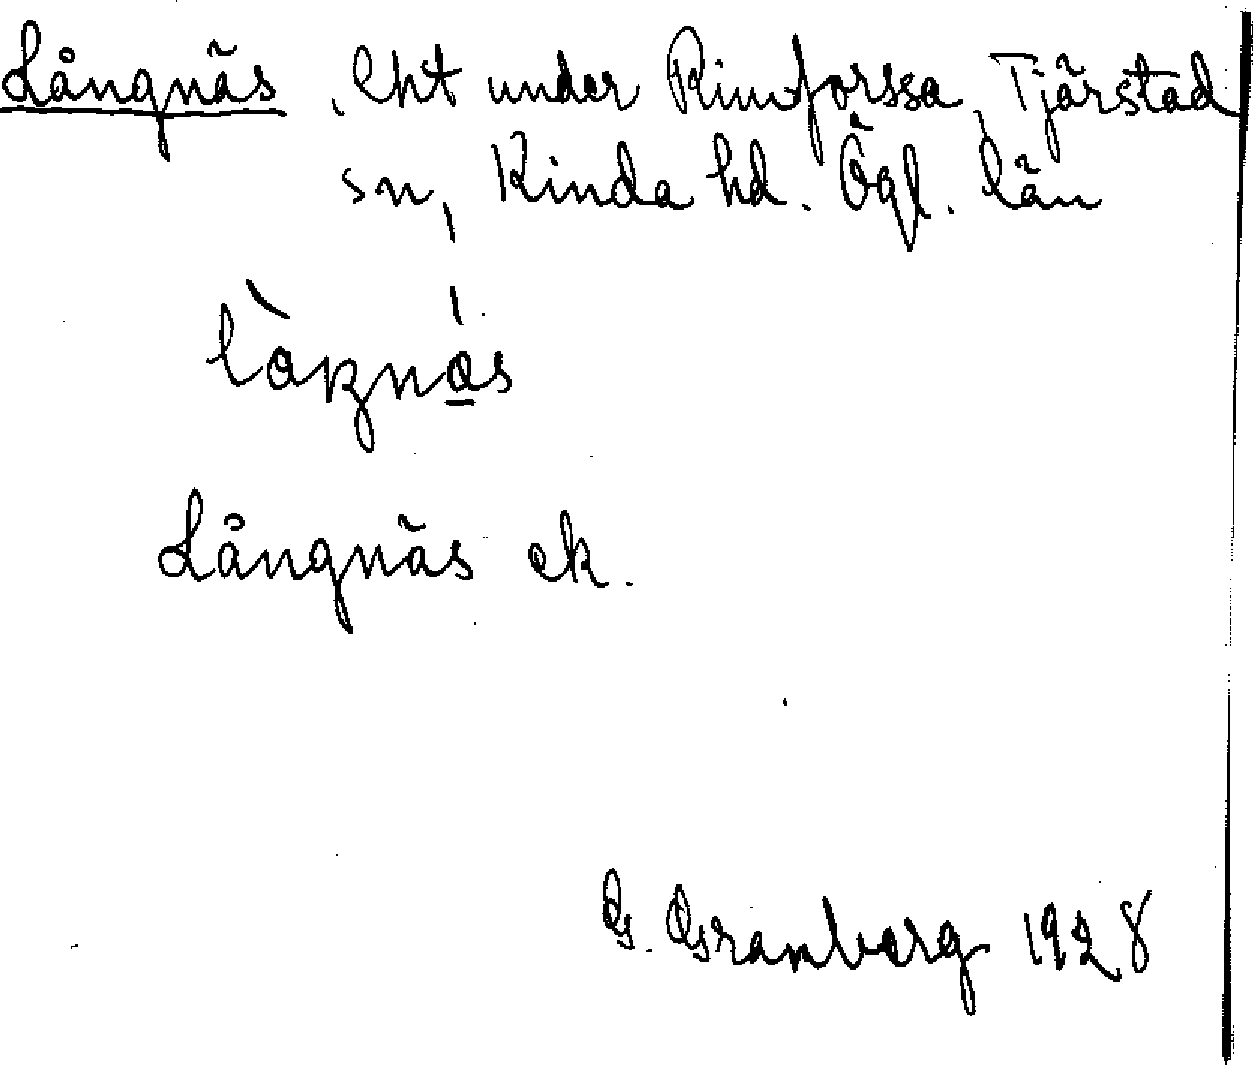 Långnäs, lht under Rimforssa, Tjärstad
sn, Kinda hd. Ögl. län
Långnäs ek.
G. Granberg 1928